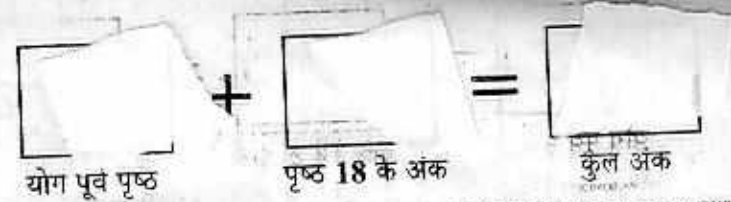 + =
योग पूर्व पृष्ठ पृष्ठ 18 के अंक कुल अंक